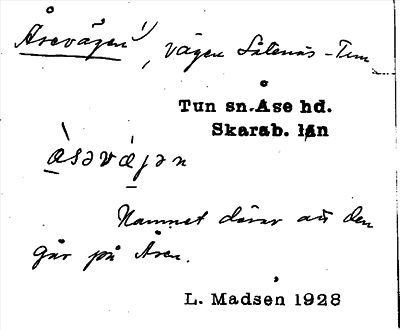 Åsevägen 1), vägen Såtenäs - Tun
Tun sn. Åse hd.
Skarab. län
å̀səvä̀jən
Namnet därav att den
går på Åsen.
L. Madsen 1928